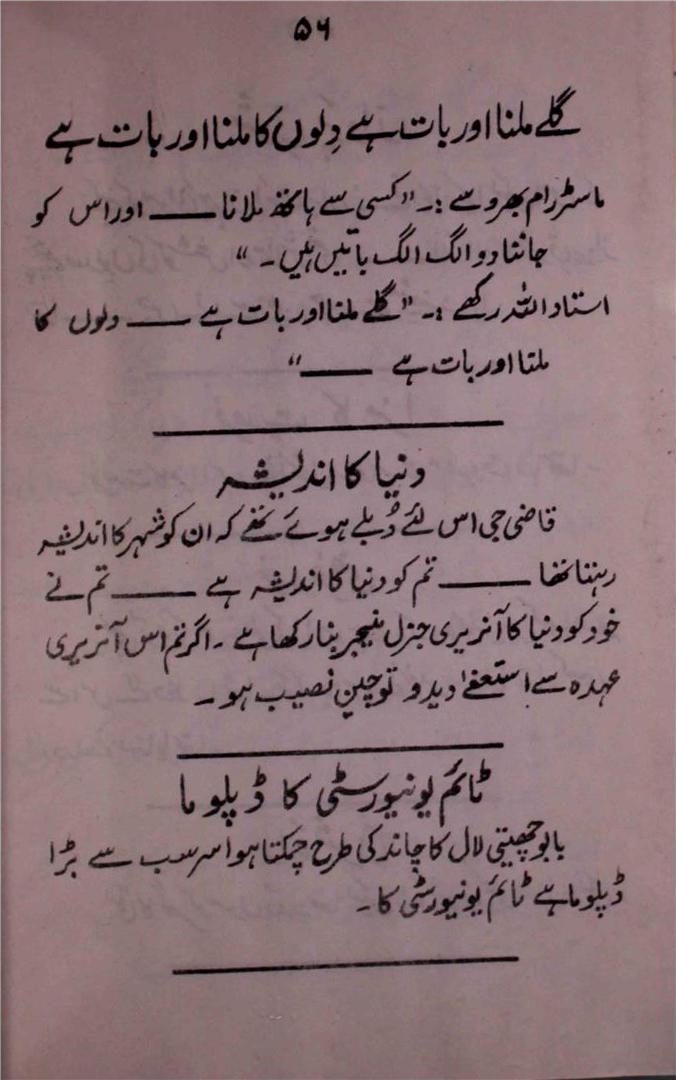 ۵۶
گلے ملنا اور بات ہے دِلوں کا ملنا اور بات ہے
ماسٹر رام بھروسے :۔ "کسی سے ہاتھ ملانا ــــــ اور اس کو
جاننا دو الگ الگ باتیں ہیں ۔ "
استاد اللہ رکھے :۔ "گلے ملنا اور بات ہے ــــــ دلوں کا
ملنا اور بات ہے ــــــ "
دنیا کا اندیشہ
قاضی جی اس لئے دُبلے ہوئے تھے کہ ان کو شہر کا اندیشہ
رہتا تھا ــــــ تم کو دنیا کا اندیشہ ہے ــــــ تم نے
خود کو دنیا کا آنریری جنرل منیجر بنا رکھا ہے ۔ اگر تم اس آنریری
عہدہ سے استعفےٰ دیدو تو چین نصیب ہو ۔
ٹائم یونیورسٹی کا ڈپلوما
بابو چھیتی لال کا چاند کی طرح چمکتا ہوا سر سب سے بڑا
ڈپلوما ہے ٹائم یونیورسٹی کا ۔